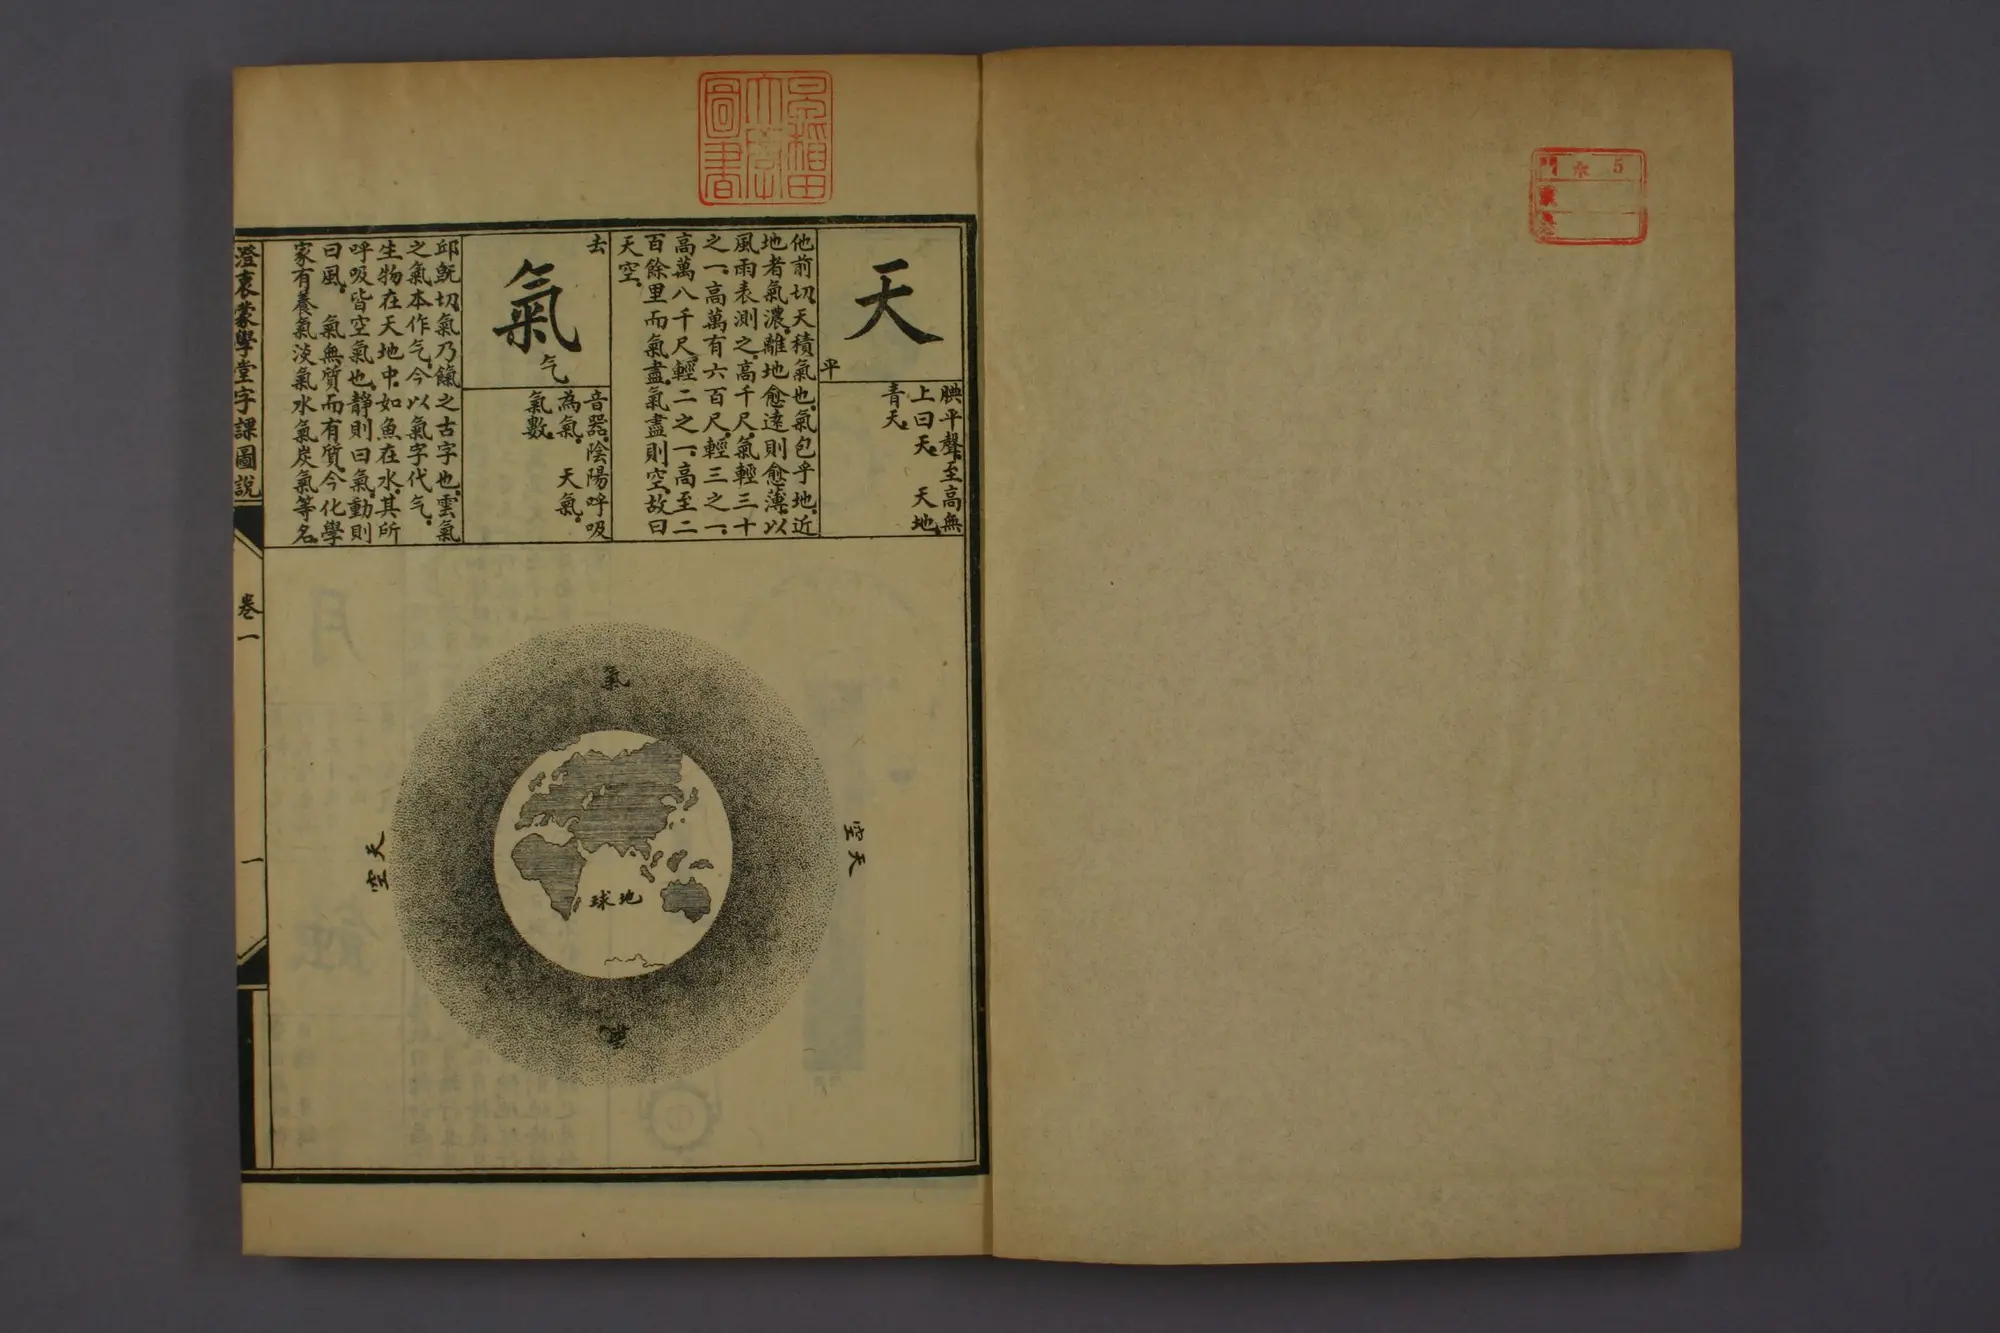 早稲田
大學
圖書
天
平
腆平聲。至高無
上曰天。 天地。
青天。
他前切。天積氣也。氣包乎地。近
地者氣濃。離地愈遠則愈薄。以
風雨表測之。高千尺。氣輕三十
之一。高萬有六百尺。輕三之一。
高萬八千尺。輕二之一。高至二
百餘里而氣盡。氣盡則空。故曰
天空。
去
氣
气
音器。陰陽呼吸
為氣。 天氣。
氣數。
邱旣切。氣乃餼之古字也。雲氣
之氣本作气。今以氣字代气。
生物在天地中。如魚在水。其所
呼吸皆空氣也。靜則曰氣。動則
曰風。 氣無質而有質。今化學
家有養氣淡氣水氣炭氣等名。
氣
天空
地球
天空
氣
澄衷蒙學堂字課圖說
卷一
一
門
5